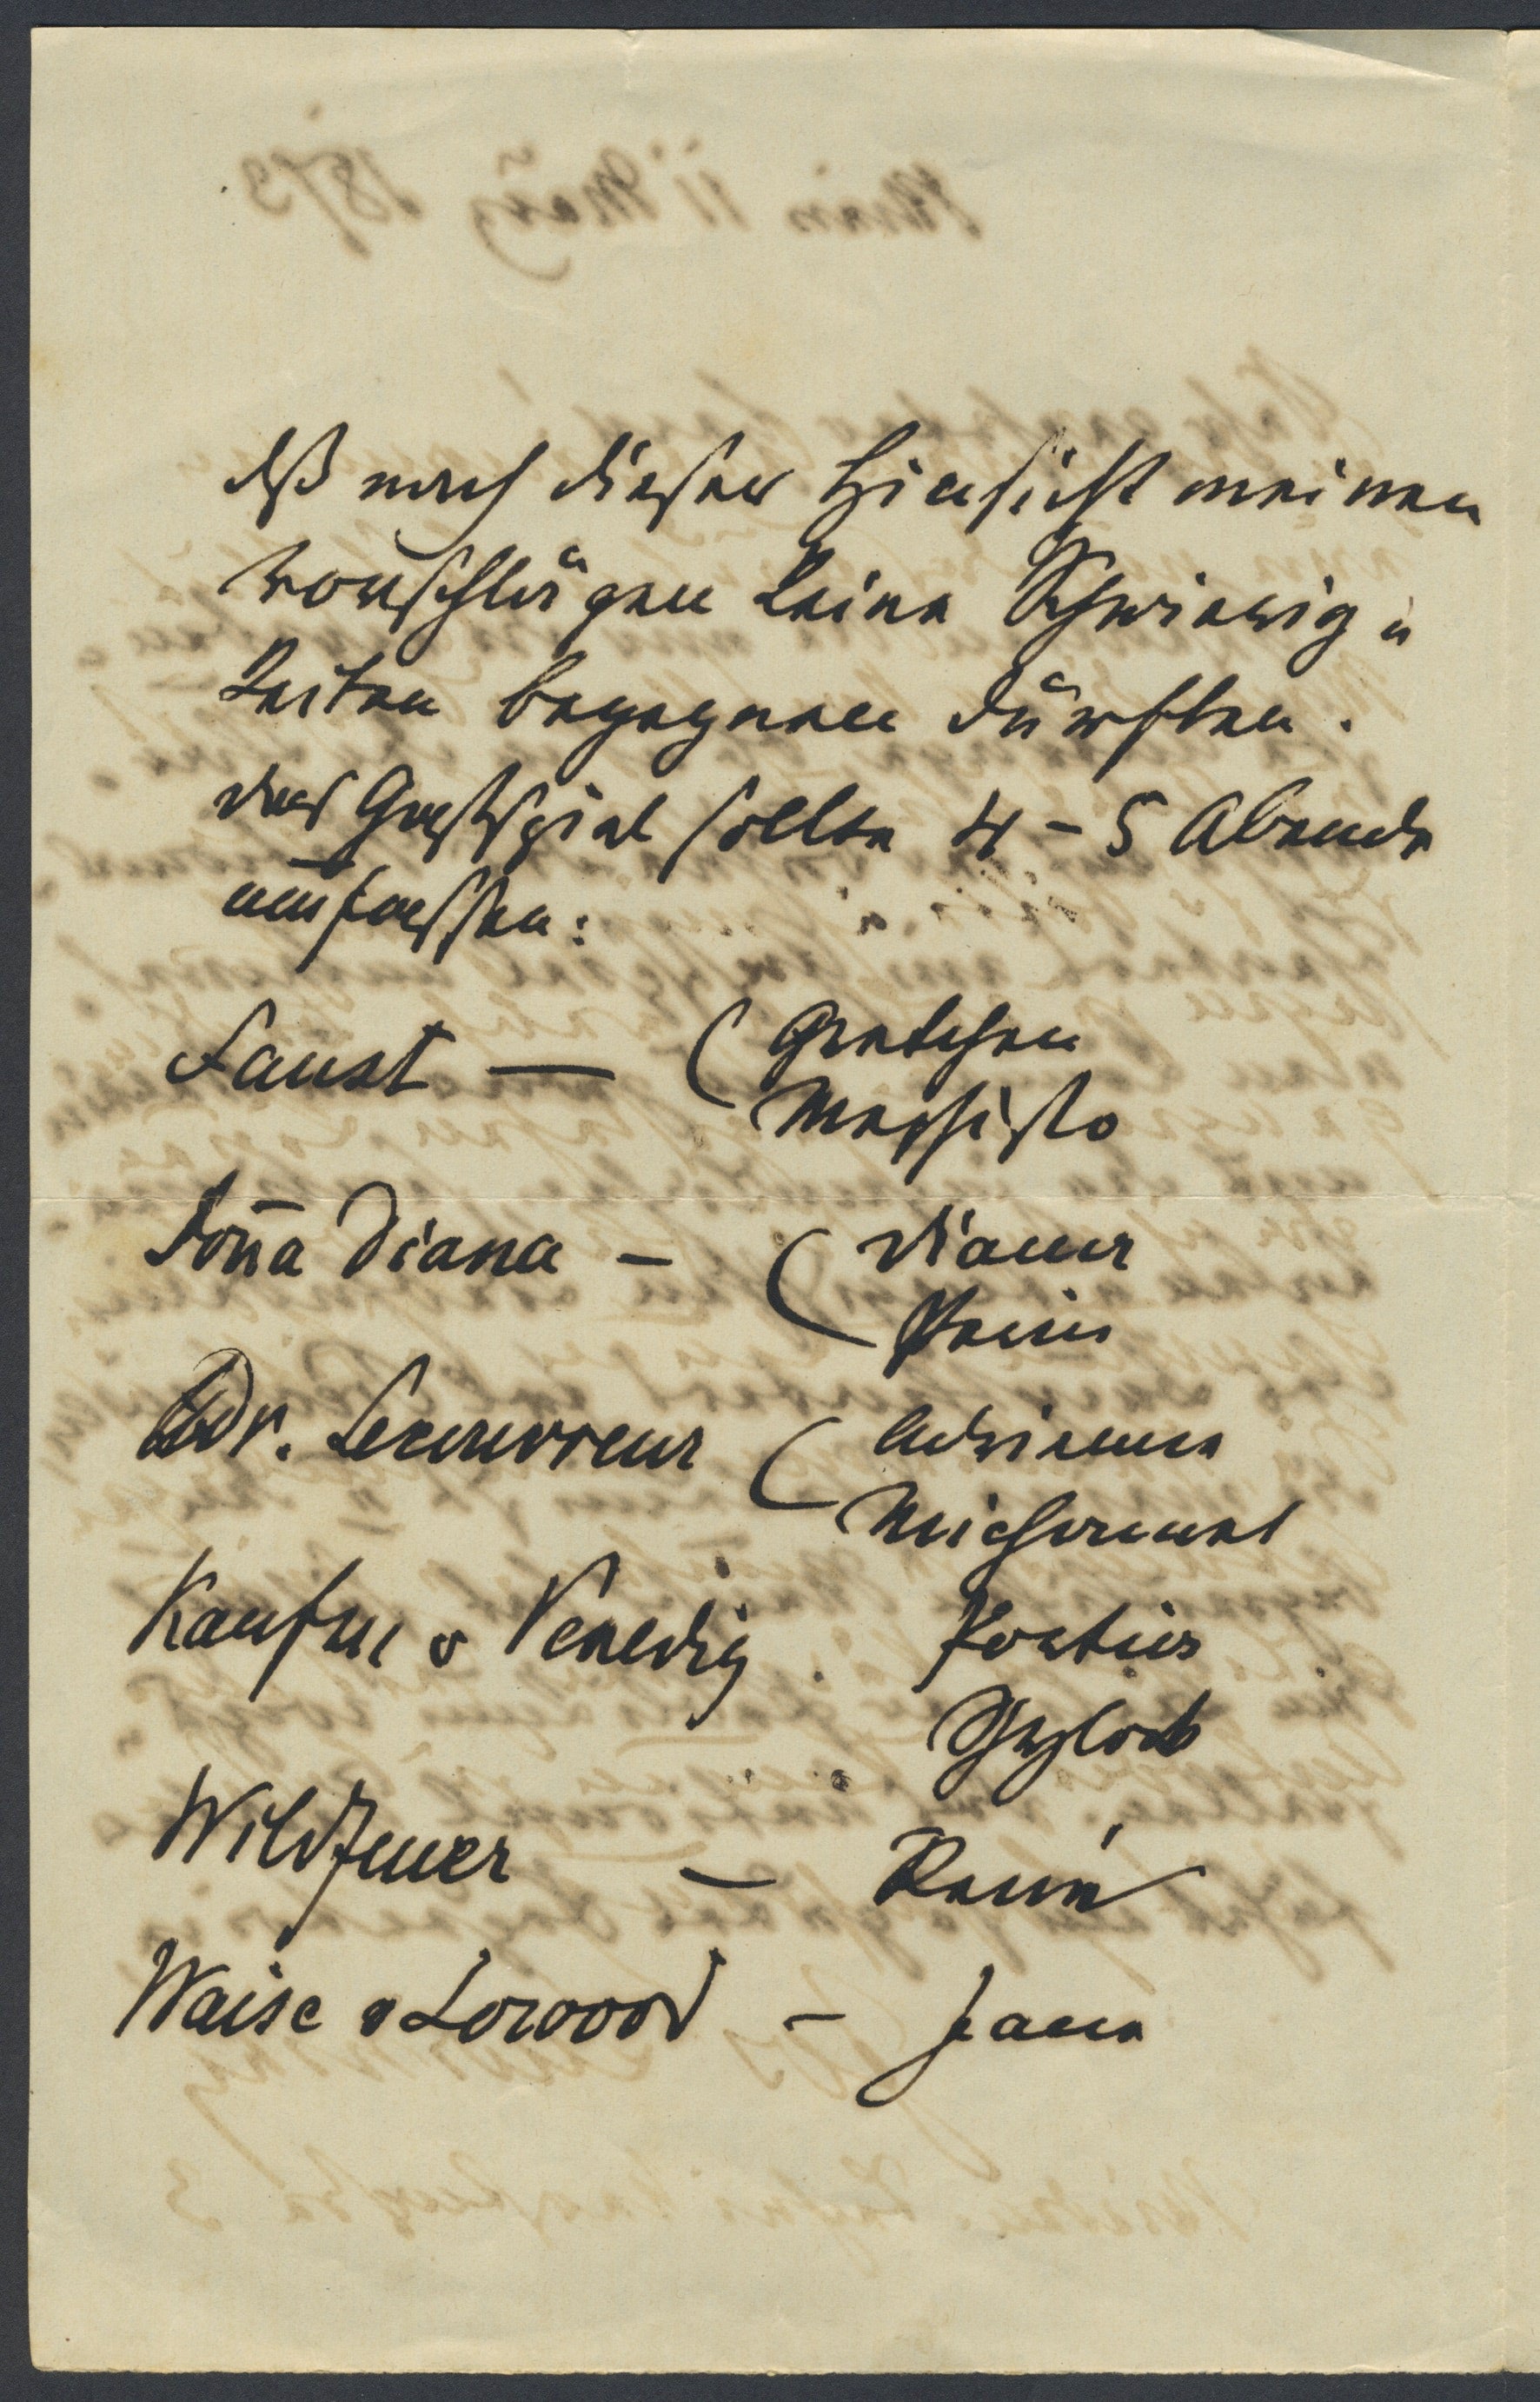 daß nach dieser Hinsicht meinen
Vorschlägen keine Schwierig¬
keiten begegnen dürften.
Das Gastspiel sollte 4 - 5 Abende
umfassen:
Faust — ( Gretchen
Mephisto
Don̄a Diana — ( Diana
Perin
Adr. Lecouvreur ( Adrienne
Michonnet
Kaufm v Venedig. Portia
Shylock
Wildfeuer — René
Waise v Lowood — Jane